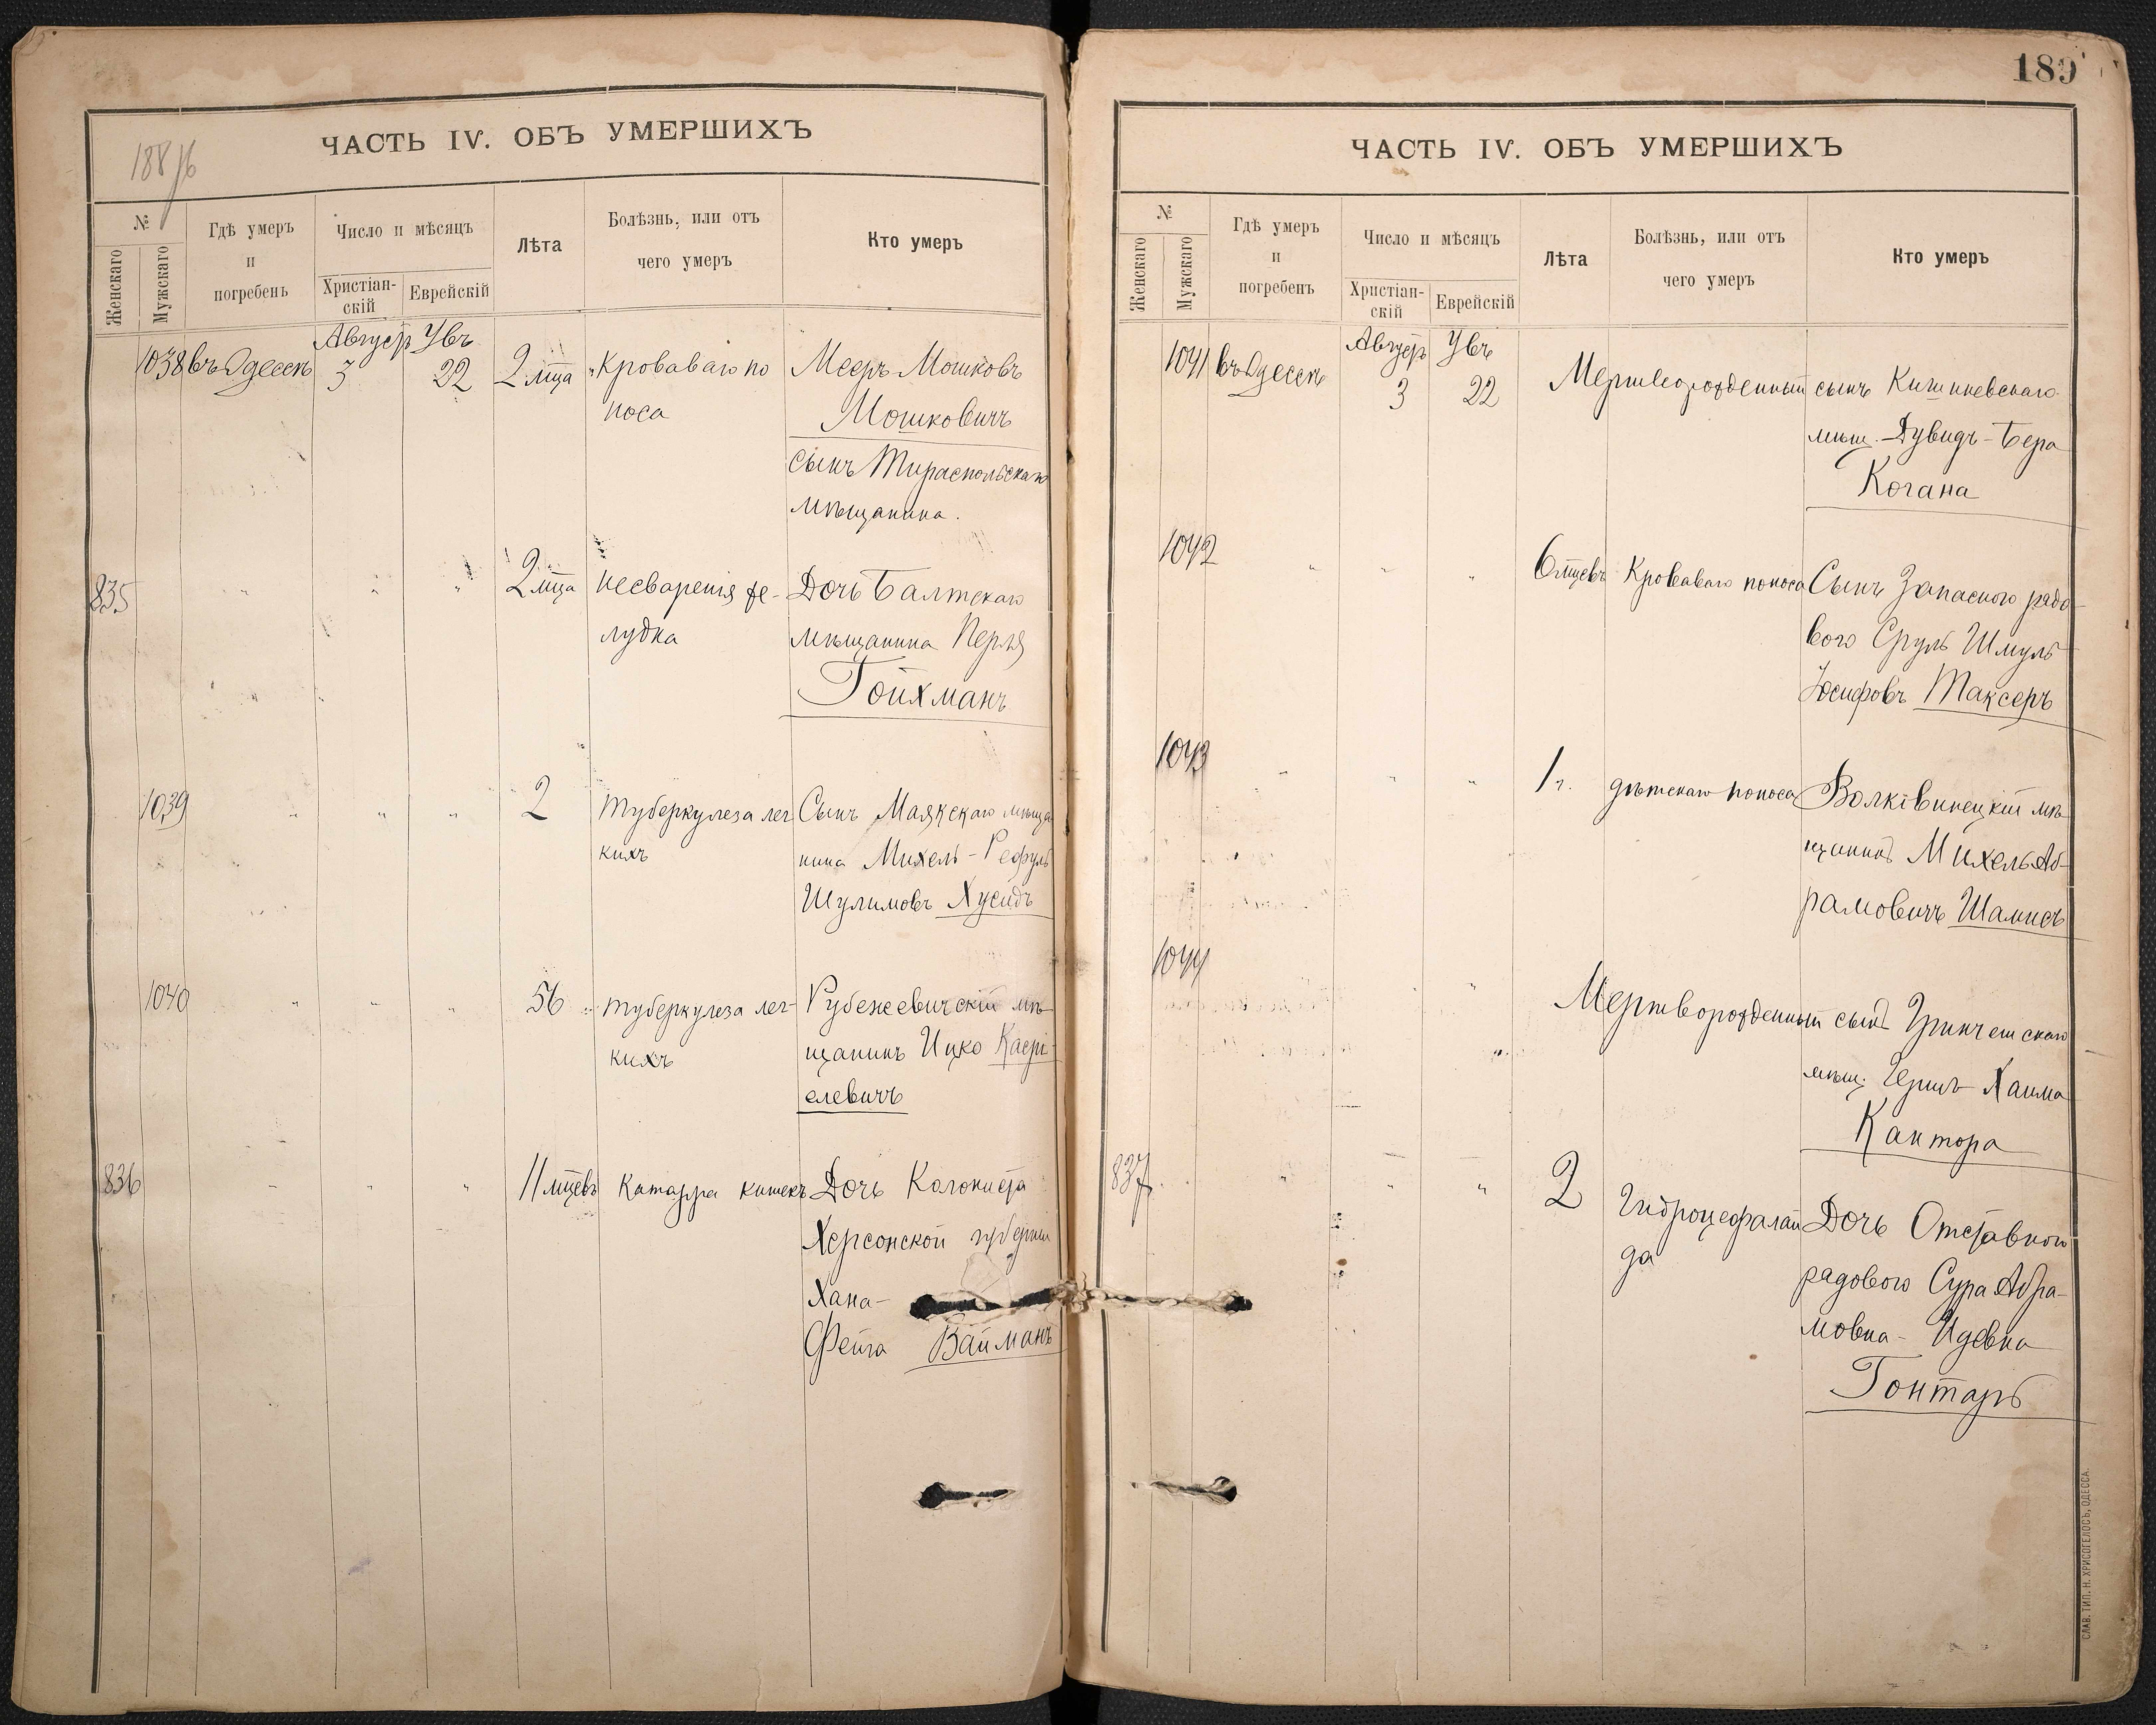 ЧАСТЬ IV. ОБЪ УМЕРШИХЪ
№
Женскаго
Мужскаго
Гдѣ умеръ
и
погребенъ
Число и мѣсяцъ
Христіан-
скій
Еврейскій
Лѣта
Болѣзнь, или отъ
чего умеръ
Кто умеръ
Август Увъ
1038 въ Одессѣ 3 22 2 мца Кроваваго по Меер Мошковъ
носа Мошковичъ
сынъ Тираспольскаго
мѣщанина.
835 " " " 2 мца несваренія же- Дочь Балтскаго
лудка мѣщанина Перля
Гойхманъ
1039 " " " 2 туберкулеза лег Сынъ Маякскаго мѣща
кихъ нина Михель-Рефуль
Шулимовъ Хусидъ
1040 " " " 56 туберкулеза лег- Рубежевичскій мѣ-
кихъ щанинъ Ицко Касри-
елевичъ
836 " " " 11 мцевъ Катарра кишекъ Дочь Колониста
Херсонской губерніи
Хана-
Фейга Вайманъ
189
ЧАСТЬ IV. ОБЪ УМЕРШИХЪ
№
Женскаго
Мужскаго
Гдѣ умеръ
и
погребенъ
Число и мѣсяцъ
Христіан-
скій
Еврейскій
Лѣта
Болѣзнь, или отъ
чего умеръ
Кто умеръ
Август Увъ
1041 въ Одессѣ 3 22 Мертворожденный сынъ Кишиневскаго
мѣщ. Дувидъ-Бера
Когана
1042 " " " 6 мцевъ Кроваваго поноса Сынъ Запасного рядо-
вого Сруль Шмуль
Іосифовъ Таксеръ
1043 " " " 1 г. дѣтскаго поноса Волковинецкій мѣ-
щанинъ Михель Аб-
рамовичъ Шамисъ
1044 " " Мертворожденный сынъ скаго
мѣщ. Герш Хаима
Кантора
837 " " " 2 Гидроцефалои Дочь Отставного
да рядового Сура Абра-
мовна - Идевна
Гонтарь
СЛАВ. ТИП. Н. ХРИСОГЕЛОСЪ, ОДЕССА.